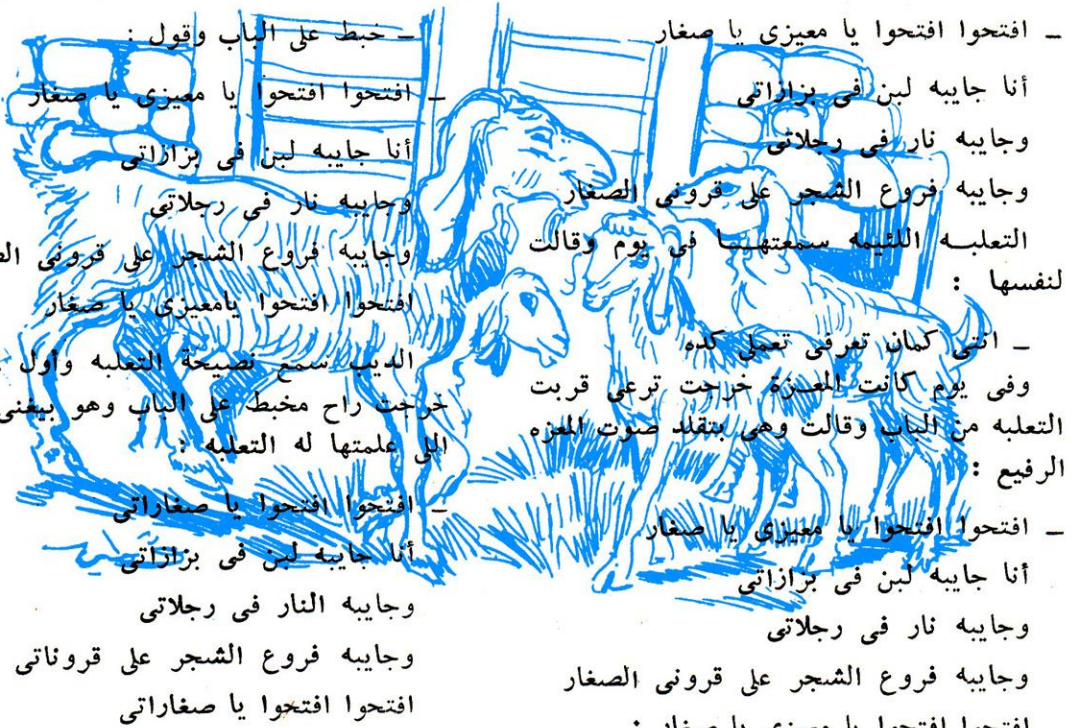 ـ افتحوا افتحوا يا معيزى يا صغار
أنا جايبه لبن فى بزازاتى
وجايبه نار فى رجلاتى
وجايبه فروع الشجر على قرونى الصغار
التعلبــه اللئيمه سمعتهــا فى يوم وقالت
لنفسها :
ـ انتى كمان تعرفى تعملى كده
وفى يوم كانت المعـزة خرجت ترعى قربت
التعلبه من الباب وقالت وهى بتقلد صوت المعزه
الرفيع :
ـ افتحوا افتحوا يا معيزى يا صغار
أنا جايبه لبن فى بزازاتى
وجايبه نار فى رجلاتى
وجايبه فروع الشجر على قرونى الصغار
افتحوا افتحوا يا معيزى يا صغار :
ـ خبط على الباب وقول :
ـ افتحوا افتحوا يا معيزى يا صغار
أنا جايبه لبن فى بزازاتى
وجايبه نار فى رجلاتى
وجايبه فروع الشجر على قرونى
افتحوا افتحوا يامعيزى يا صغار
الديب سمع نصيحة التعلبه وأول
خرجت راح مخبط على الباب وهو بيغنى
اللى علمتها له التعلبه :
ـ افتحوا افتحوا يا صغاراتى
أنا جايبه لبن فى بزازاتى
وجايبه النار فى رجلاتى
وجايبه فروع الشجر على قروناتى
افتحوا افتحوا يا صغاراتى